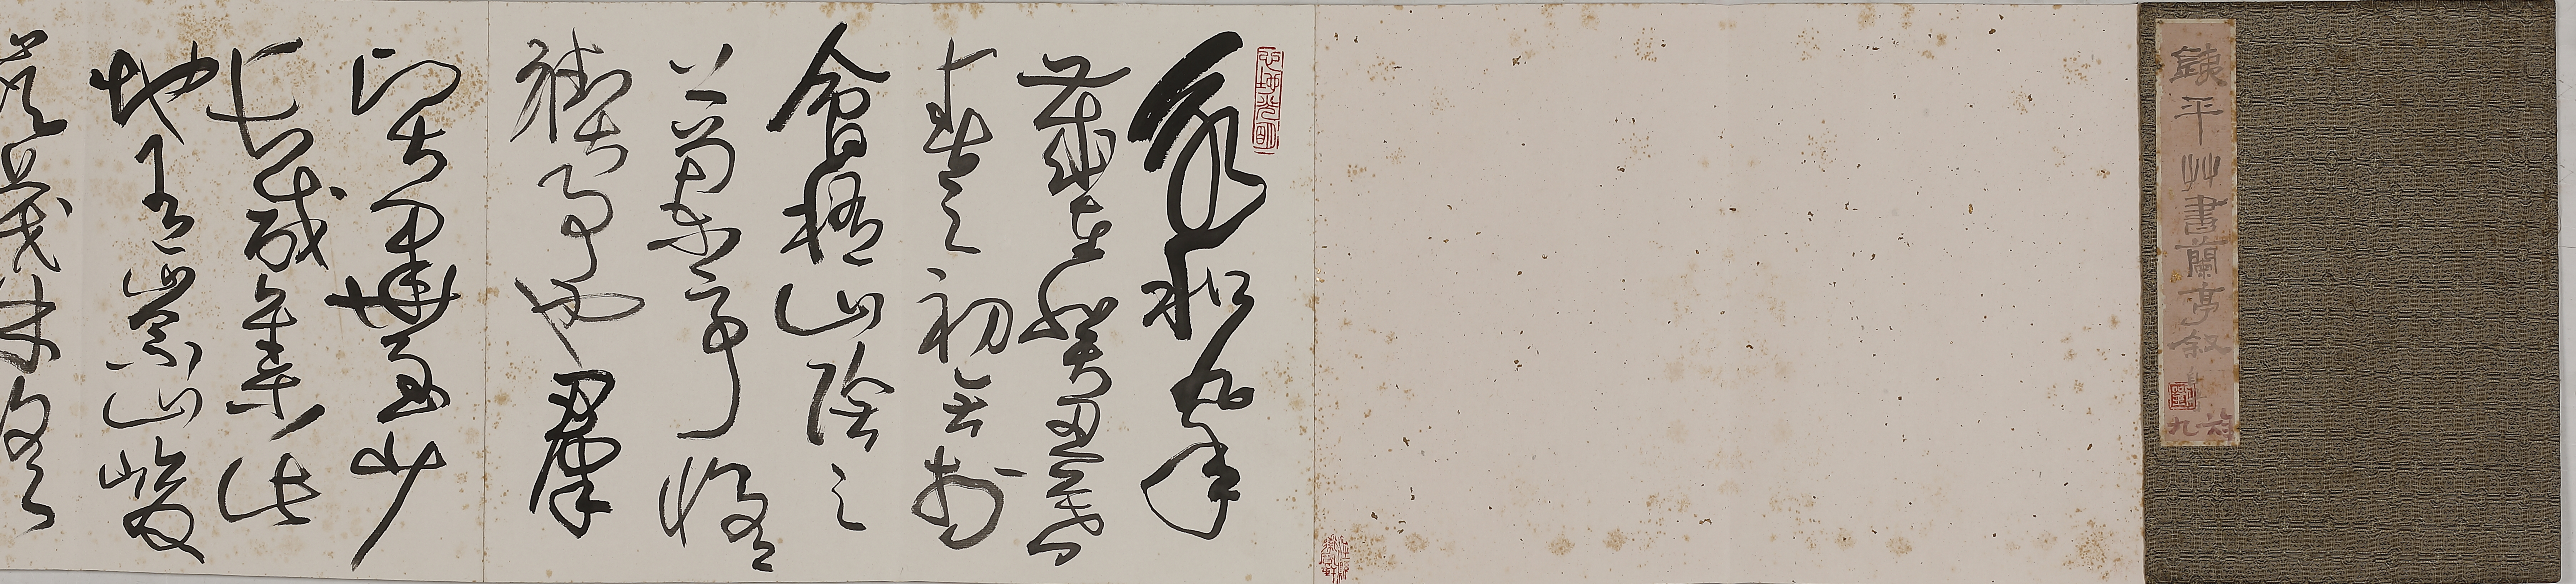 銕平艸書蘭亭敘
心地光明
永和九年
歲在癸丑暮
春之初會於
會稽山陰之
蘭亭脩
禊事也羣
賢畢至少
長咸集此
地有崇山峻
領茂林脩